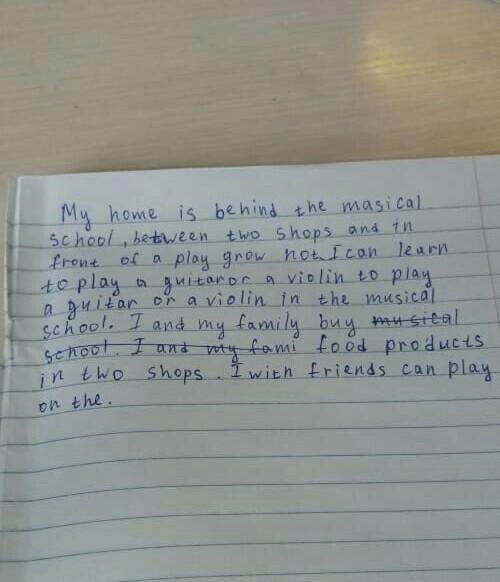 My home is behind the masical
school, between two shops and in
front of a play grow not I can learn
to play a guitar or a violin to play
a guitar or a violin in the musical
school. I and my family buy musical
school. I and my fami food products
in two shops. I with friends can play
on the.